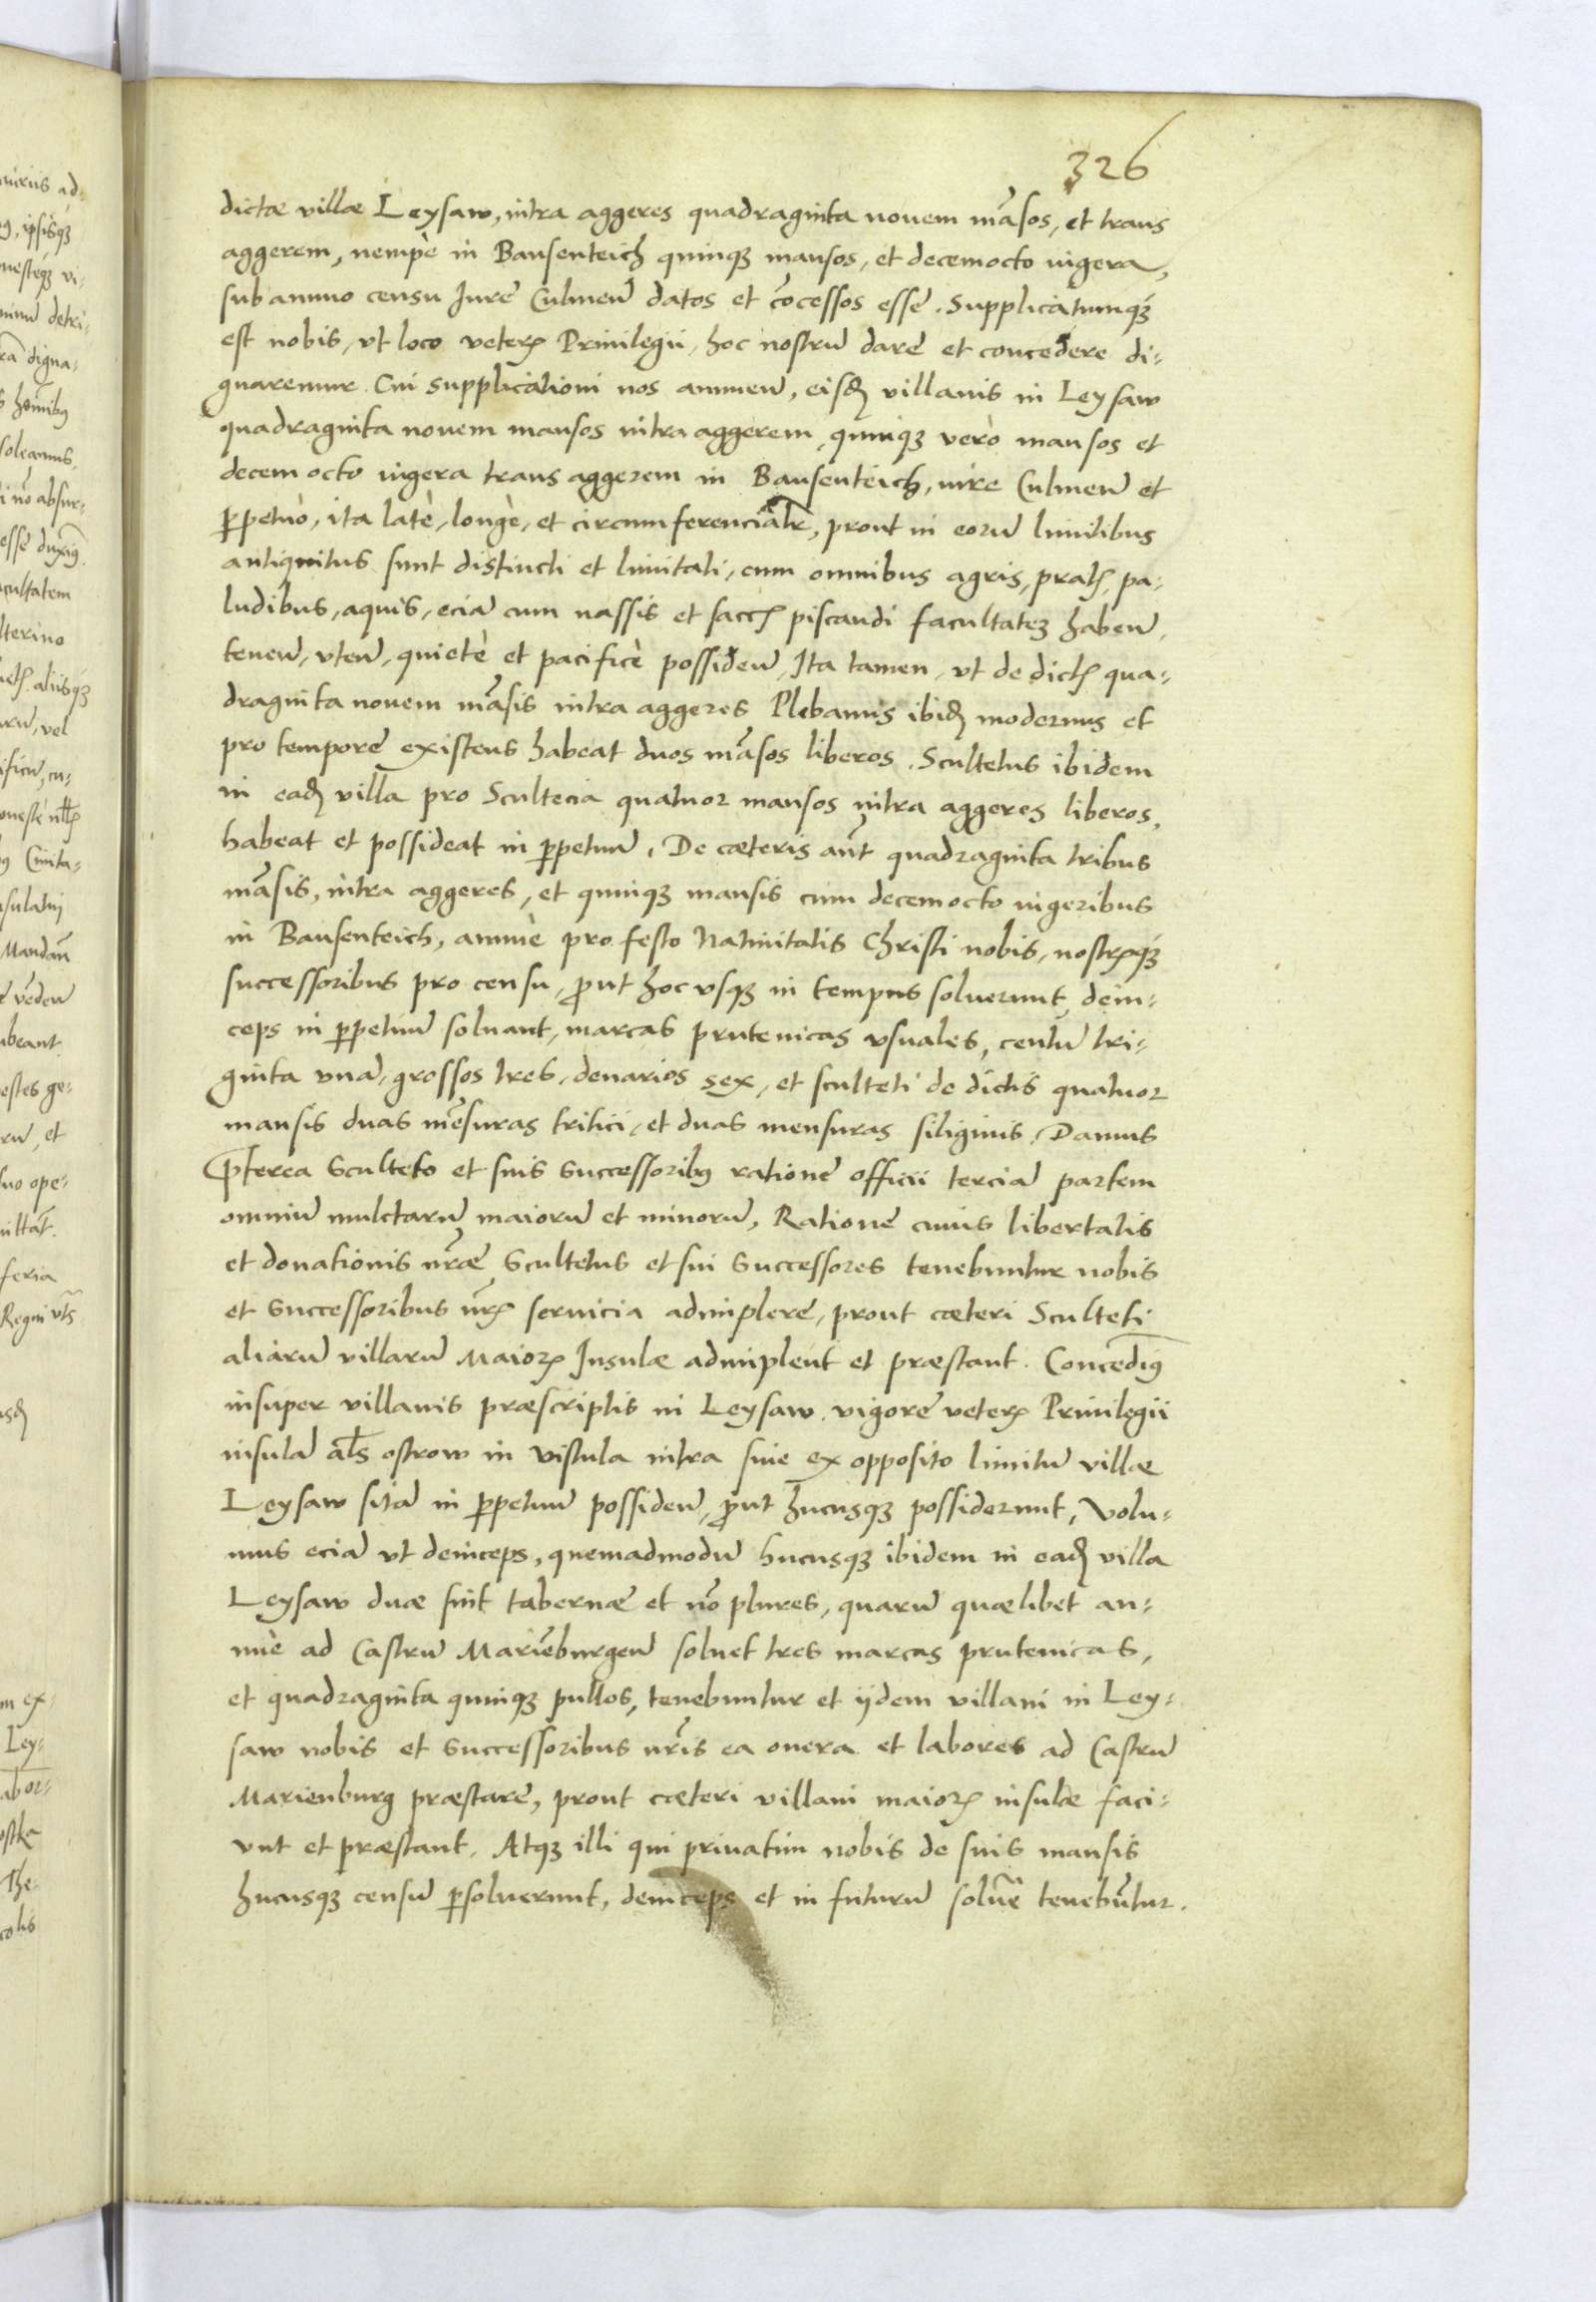 326
dictæ villæ Leysaw, intra aggeres quadraginta nouem mãsos, et trans
aggerem, nempè in Bansenteich quinqꝫ mansos, et decemocto iugera,
sub annuo censu Jure Culmeñ datos et cõcessos esse. Supplicatumqꝫ
est nobis, vt loco veterꝭ Priuilegii, hoc nostrũ dare et concedere di-
gnaremur. Cui supplicationi nos annueñ, eisđ villanis in Leysaw
quadraginta nouem mansos intra aggerem, quinqꝫ verò mansos et
decem octo iugera trans aggerem in Bansenteich, iure Culmeñ et
ꝑpetuò, ita latè, longè, et circumferencialr̃, prout in eorũ limitibus
antiquitus sunt distincti et limitati, cum omnibus agris, pratꝭ, pa-
ludibus, aquis, eciã cum nassis et saccꝭ piscandi facultatẽ habeñ,
teneñ, vteñ, quietè et pacificè possideñ, Ita tamen, vt de dictꝭ qua-
draginta nouem mãsis intra aggeres Plebanus ibiđ modernus et
pro tempore existens habeat duos mãsos liberos. Scultetus ibidem
in eađ villa pro Scultecia quatuor mansos intra aggeres liberos,
habeat et possideat in ꝑpetuũ. De cæteris aũt quadraginta tribus
mãsis, intra aggeres, et quinqꝫ mansis cum decemocto iugeribus
in Bansenteich, annuè pro festo Natiuitatis Christi nobis, nostrꝭqꝫ
successoribus pro censu, ꝓut hoc vsqꝫ in tempus soluerunt, dein-
ceps in ꝑpetuũ soluant, marcas prutenicas vsuales, centũ tri-
ginta vnã, grossos tres, denarios sex, et sculteti de dictis quatuor
mansis duas mẽsuras tritici, et duas mensuras siliginis. Damus
p̃terea Sculteto et suis successoribꝰ ratione officii terciã partem
omniũ mulctarũ maiorũ et minorũ, Ratione cuius libertatis
et donationis nr̃æ Scultetus et sui successores tenebuntur nobis
et successoribus nr̃ꝭ seruicia adimplere, prout cæteri Sculteti
aliarũ villarũ Maiorꝭ Insulæ adimplent et præstant. Concedimꝰ
insuper villanis præscriptis in Leysaw vigore veterꝭ Priuilegii
insulã al̃s ostrow in Vistula intra siue ex opposito limitũ villæ
Leysaw sitã in ꝑpetuũ possideñ, ꝓut hucusqꝫ possiderunt, Volu-
mus eciã vt deinceps, quemadmodũ hucusqꝫ ibidem in eađ villa
Leysaw duæ sint tabernæ et nõ plures, quarũ quælibet an-
nuè ad Castrũ Mariẽburgeñ soluet tres marcas prutenicas,
et quadraginta quinqꝫ pullos, tenebuntur et ijdem villani in Ley-
saw nobis et successoribus nr̃is ea onera et labores ad Castrũ
Marienburg præstare, prout cæteri villani maiorꝭ insulæ faci-
vnt et præstant. Atqꝫ illi qui priuatim nobis de suis mansis
hucusqꝫ censũ ꝑsoluerunt, deinceps et in futurũ soluẽ tenebũtur.